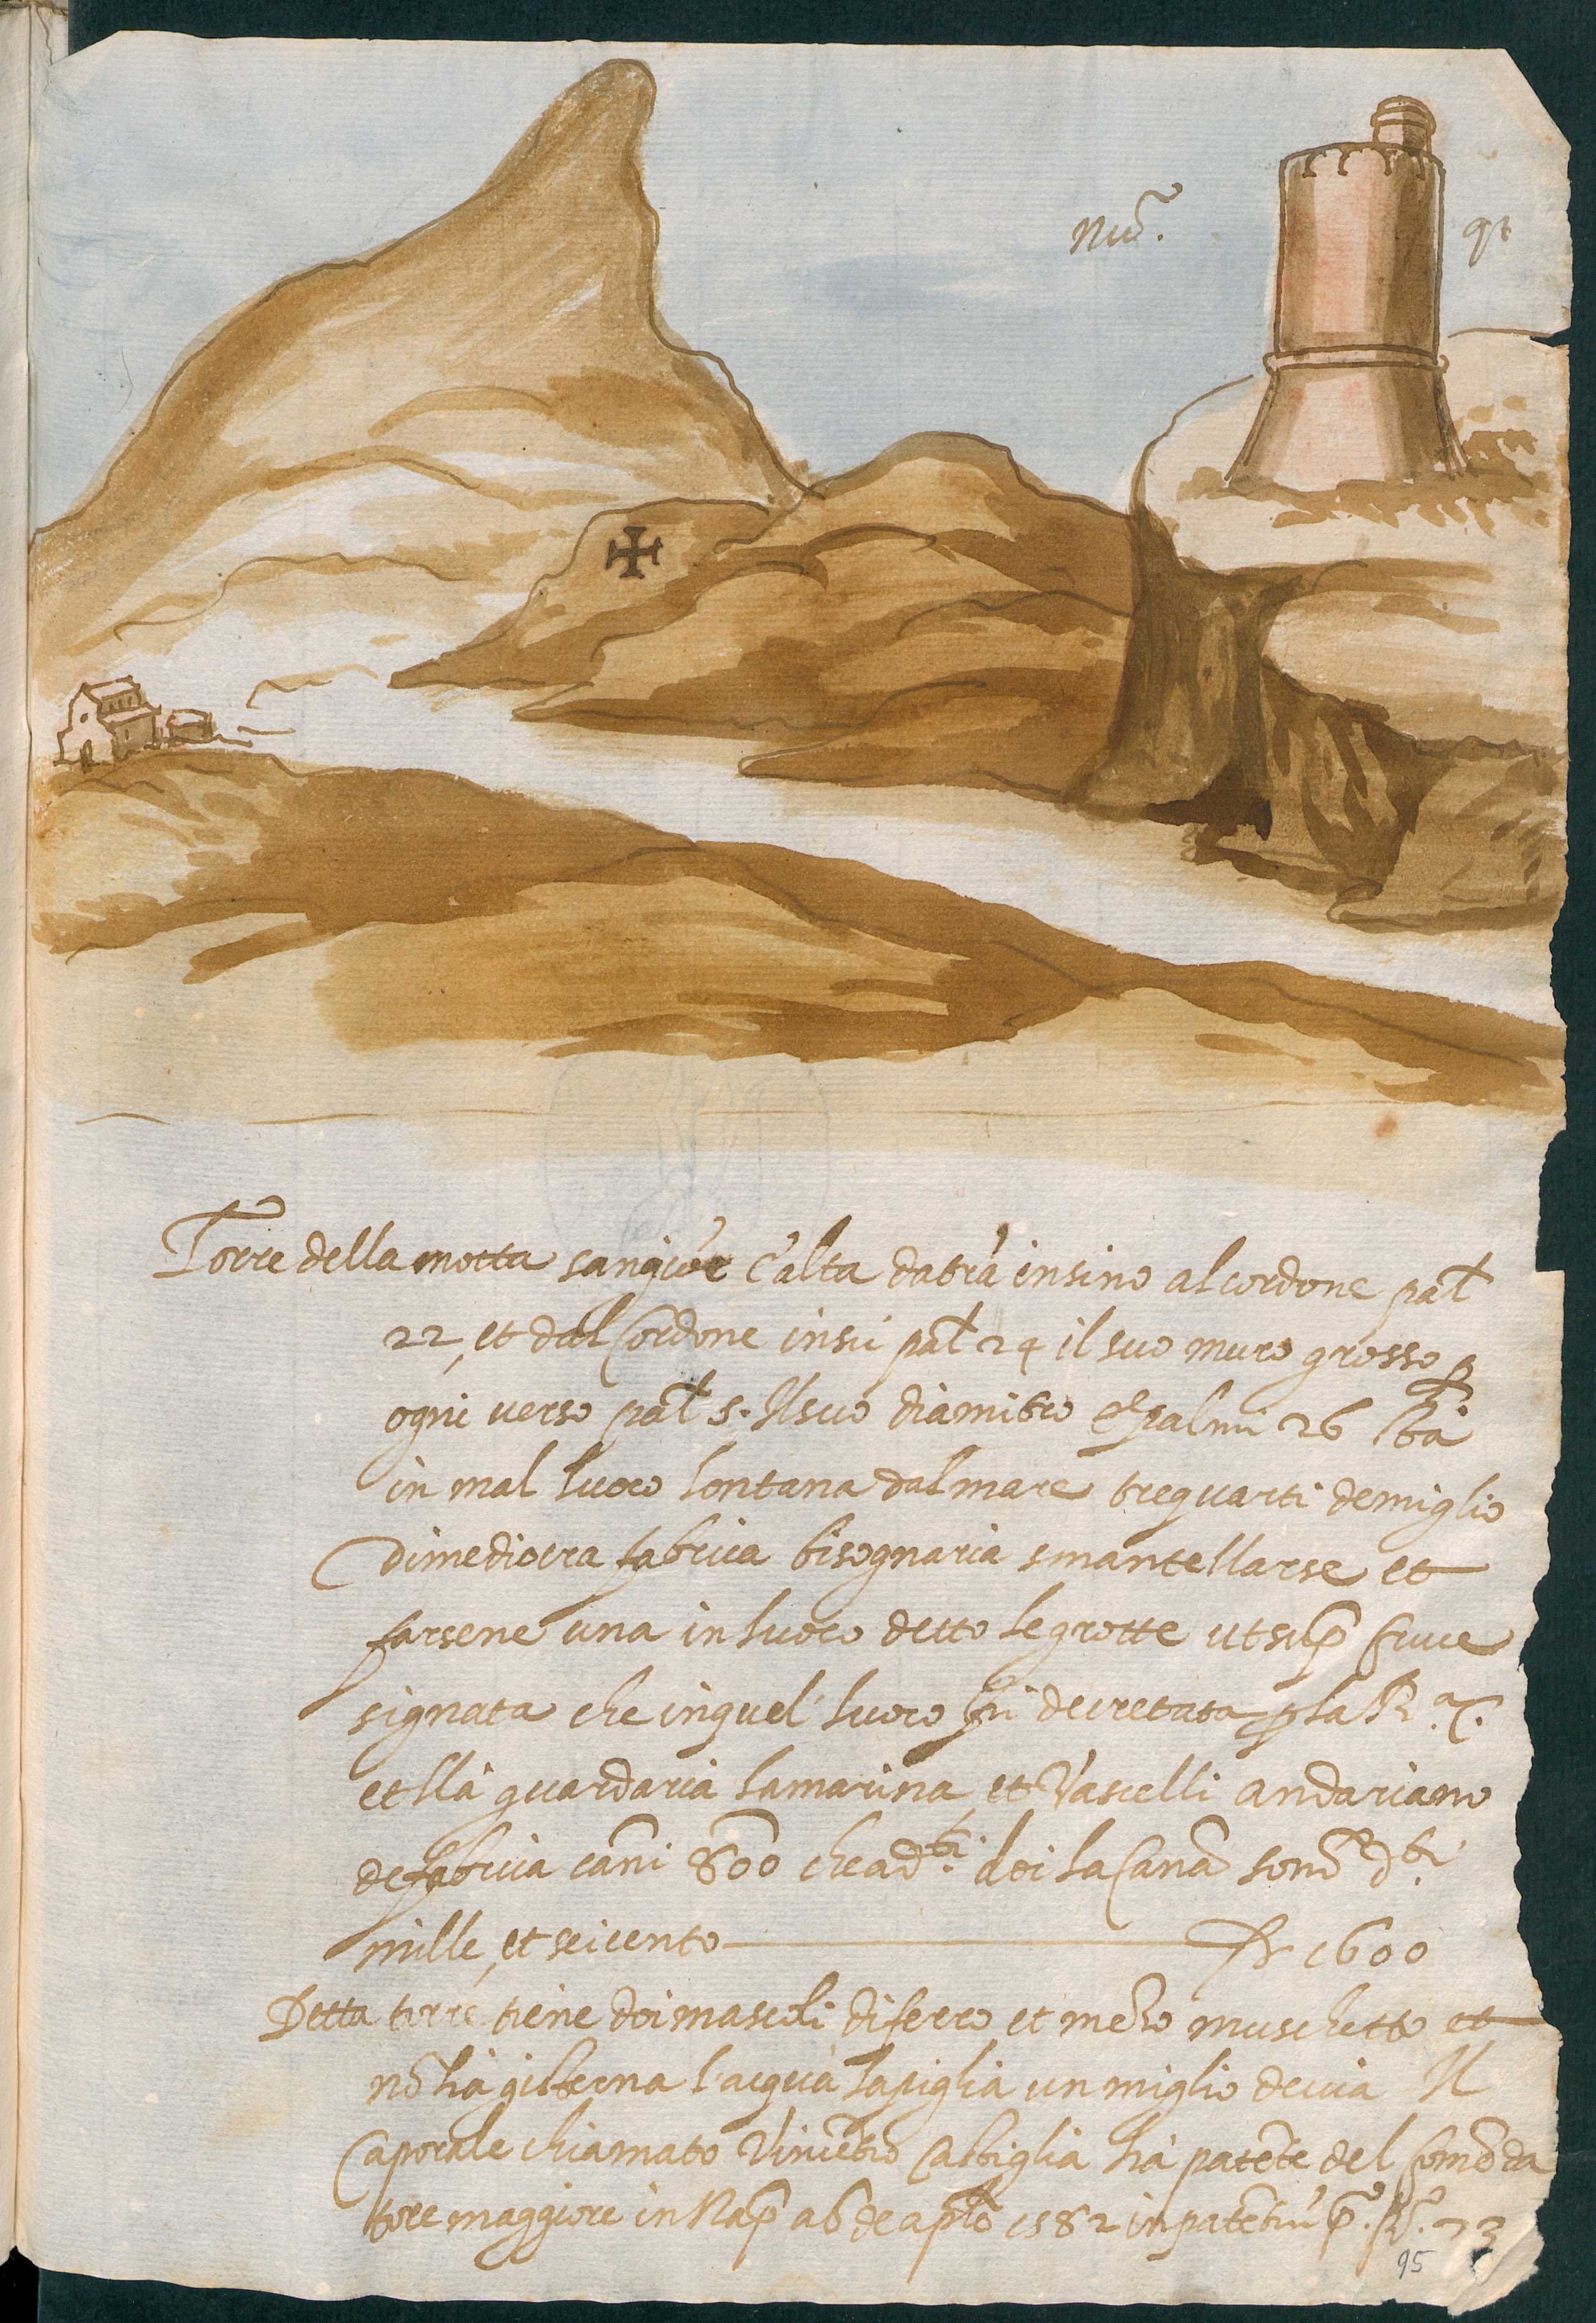 Nũ. 9
Torre della motta sangioe è alta da trà insino al cordone pal
22, et dal Cordone insù pal 24 il suo muro grosso p
ogni verso pal 5. Il suo diamitro è palmi 26 Stà
in mal luoco lontana dal mare tre quarti de miglio
di mediocra fabrica bisognaria smantellarse et
farsene una in luoco detto le grotte ut sup Cruce
signata che in quel luoco fù decretata p la R. C.
et llà guardaria la marina, et Vascelli andariano
de fabrica canni 800 che a dti doi la Canã sonõ dti
mille, et seicento 1600
Detta torre tiene doi mascoli di ferro et mezo muschetto et
nõ hà gisterna l'acqua la piglia un miglio de via Il
Caporale chiamato Vincẽtio Castiglia hà patẽte del Comẽda
tore maggiore in Nap a 6 de aple 1582 in patẽtiũ p. 73
95